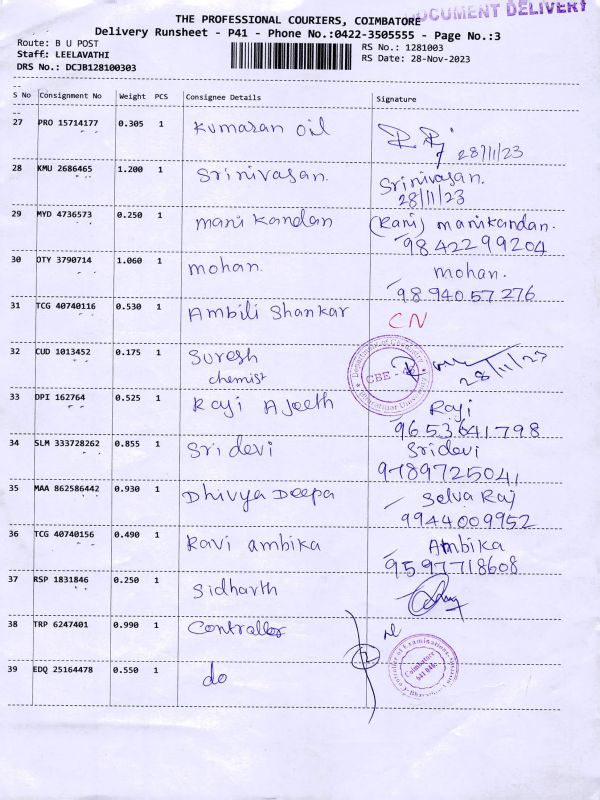 DOCUMENT DELIVERY
THE PROFESSIONAL COURIERS, COIMBATORE
Delivery Runsheet - P41 - Phone No.:0422-3505555 - Page No.:3
Route: B U POST
Staff: LEELAVATHI
DRS No.: DCJB128100303
RS No.: 1281003
RS Date: 28-Nov-2023
S No Consignment No Weight PCS Consignee Details Signature
27 PRO 15714177 0.305 1 Kumaran oil 28/11/23
28 KMU 2686465 1.200 1 Srinivasan. Srinivasan.
28/11/23
29 MYD 4736573 0.250 1 mani kandan (Rani) manikandan.
9842299204
30 OTY 3790714 1.060 1 mohan. mohan.
9894057276
31 TCG 40740116 0.530 1 Ambili Shankar CN
32 CUD 1013452 0.175 1 Suresh
chemist 28/11/23
Department of Chemistry
CBE -
Bharathiar University
33 DPI 162764 0.525 1 Raji Ajeeth Raji
9653641798
34 SLM 333728262 0.855 1 Sri devi Sridevi
9789725041
35 MAA 862586442 0.930 1 Dhivya Deepa Selva Raj
9944009952
36 TCG 40740156 0.490 1 Ravi ambika Ambika
9597718608
37 RSP 1831846 0.250 1 Sidharth
38 TRP 6247401 0.990 1 Controller
39 EDQ 25164478 0.550 1 do
2
Controller of Examinations
Coimbatore
641 046